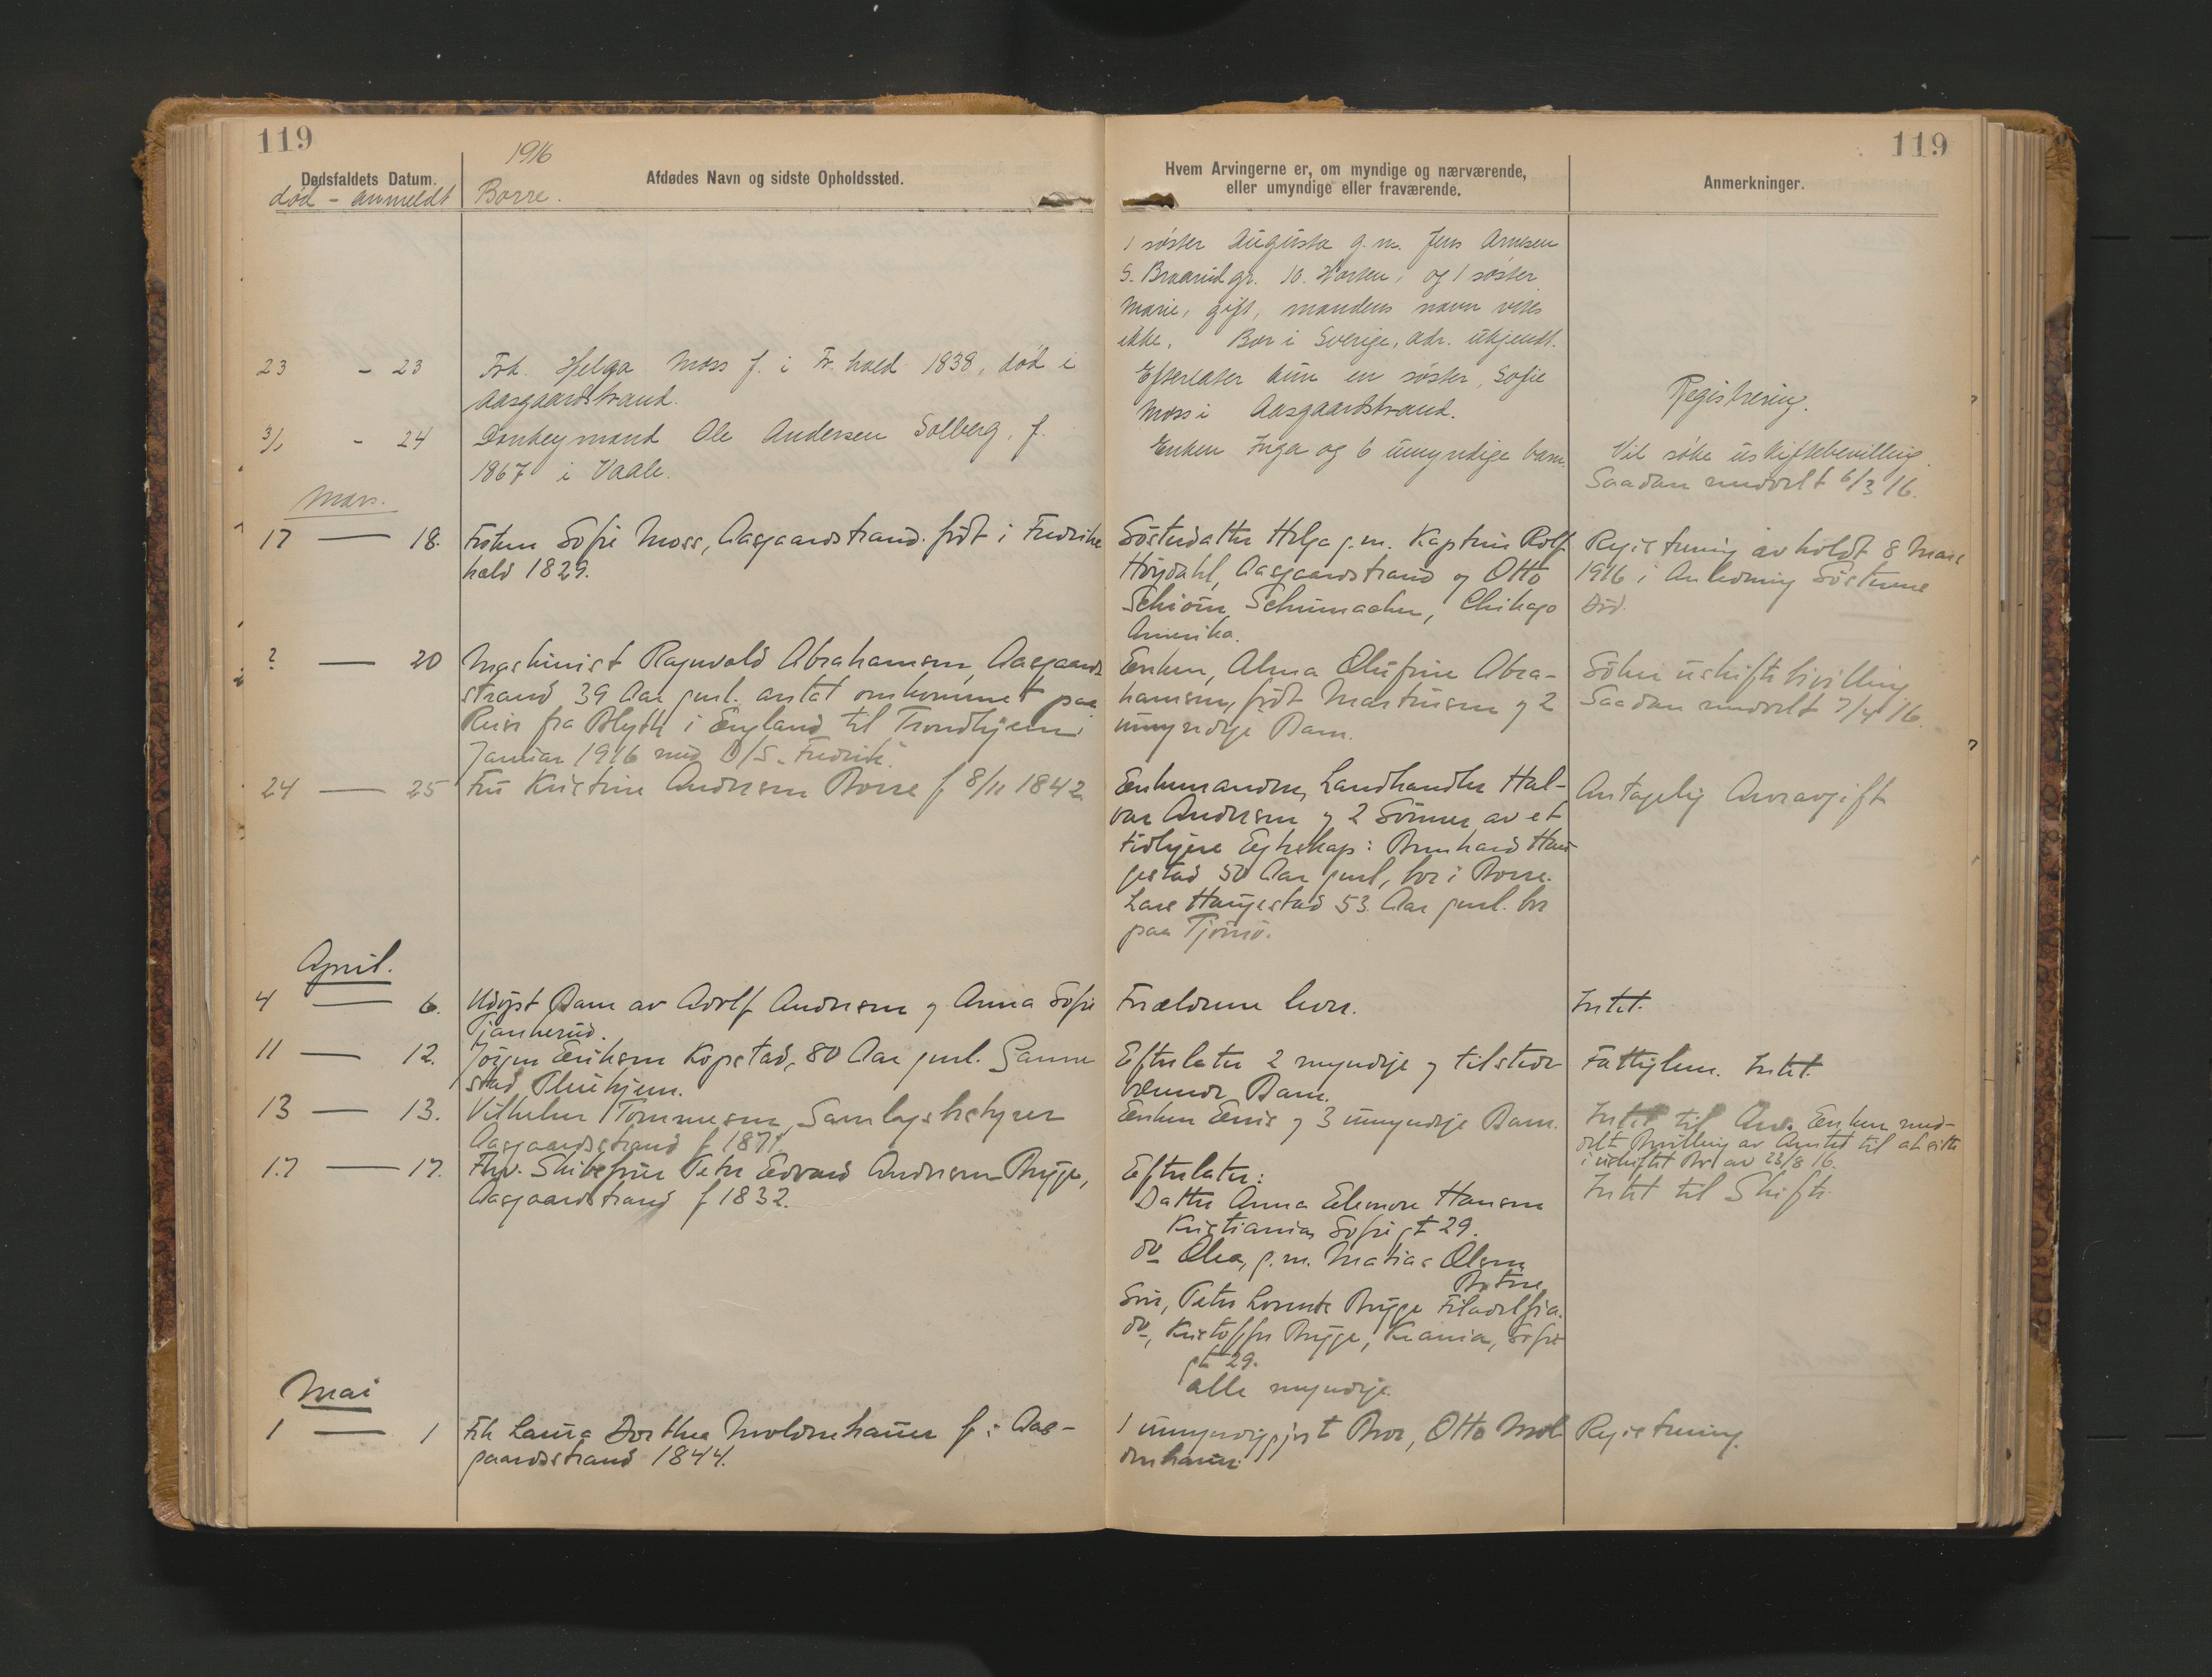 119
1916
Dødsfaldets Datum.
død - anmeldt
Afdødes Navn og sidste Opholdssted.
Borre.
23 - 23 Frk. Helga Moss f. i Fr.hald 1838, død i
Aasgaardstrand.
3/1 - 24 Donkeymand Ole Andersen Solberg, f.
1867 i Vaale.
Mars.
17 — 18. Frøken Sofie Moss, Aasgaardstrand. født i Fredriks
hald 1829.
? — 20 Maskinist Ragnvald Abrahamsen, Aasgaard
strand 39 Aar gml. antat omkommet paa
Reise fra Blyth i England til Trondhjem i
Januar 1916 med D/S "Fredrik".
24 — 25 Fru Kristine Andresen Borre f 8/11 1842
April.
4 — 6. Udøpt Barn av Adolf Andresen og Anna Sofie
Tjannerud.
11 — 12. Jørgen Eriksen Kopstad, 80 Aar gml.
stad Pleiehjem.
13 — 13. Vilhelm Tommesen, Samlagsbestyrer
Aasgaardsstrand f 1871
17 — 17. Fhv. Skibsfører Peter Edvard Andresen Brygge,
Aasgaardstrand f 1832.
Mai
1 — 1 Frk Laura Dorthea Moldenhauer f. i Aas-
gaardsstrand 1844.
119
Hvem Arvingerne er, om myndige og nærværende,
eller umyndige eller fraværende.
Anmerkninger.
1 søster Augusta g.m. Jens Arnesen
S. Braarudgt. 10. Horten, og 1 søster
Marie, gift, mandens navn vites
ikke. Bor i Sverige, adr. ukjendt.
Efterlater kun en søster, Sofie
Moss i Aasgaardstrand.
Registrering.
Enken Inga og 6 umyndige barn.
Vil søke uskiftebevilling.
Saadan meddelt 6/3 16.
Søsterdatter Helga g.m. Kaptein Rolf
Høydahl, Aasgaardstrand og Otto
Schiøtn Schumacher, Chikago
Amerika.
Registrering avholdt 8 Mars
1916 i Anledning Søsterens
Død.
Enken, Alma Olufine Abra-
hamsen, født Martinsen og 2
umyndige Barn.
Søker uskiftebevilling
Saadan meddelt 7/4 16.
Enkemanden, Landhandler Hal-
vor Andresen og 2 Sønner av et
tidligere Egteskap: Bernhard Hau
gestad 50 Aar gml, bor i Borre.
Lars Haugestad 53 Aar gml. bor
paa Tjømø.
Antagelig Arveavgift
Forældrene lever.
Intet.
Efterlater 2 myndige og tilstede
værende Barn.
Fattiglem. Intet.
Enken Enis og 3 umyndige Barn.
Intet til Arv. Enken med-
delt Bevilling av Amtet til at sitte
i uskiftet Bo av 23/8 16.
Efterlater:
Datter Anna Elenore Hansen
Kristiania, Sofiegt 29.
do Olea, g.m. Matias Olsen
Botne
Søn, Peter Lorents Brygge Filadelfia.
do, Kristoffer Brygge, Krania, Sofie
gt 29.
alle myndige.
Intet til Skifte.
1 umyndiggjort Bror, Otto Mol
denhauer
Registrering.